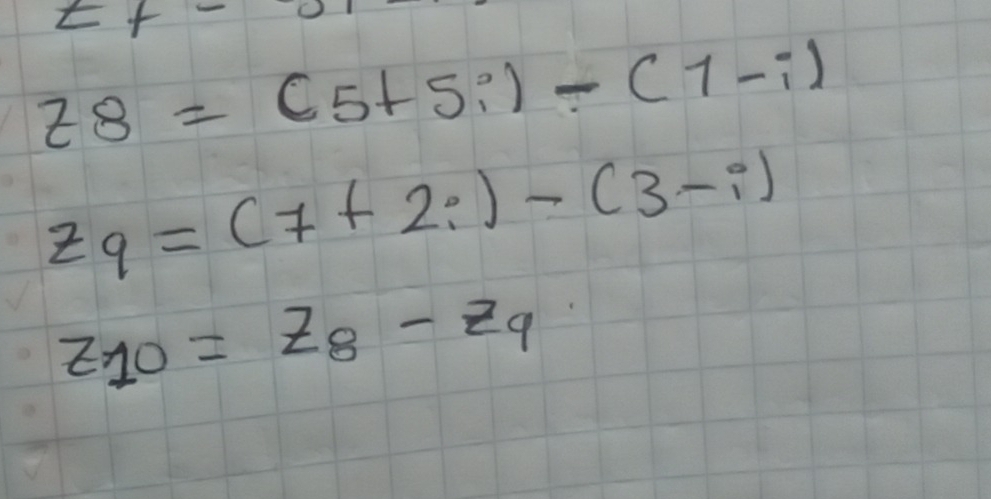 z8 = (5+5i) - (1-i)
z9 = (7+2i) - (3-i)
z10 = z8 - z9